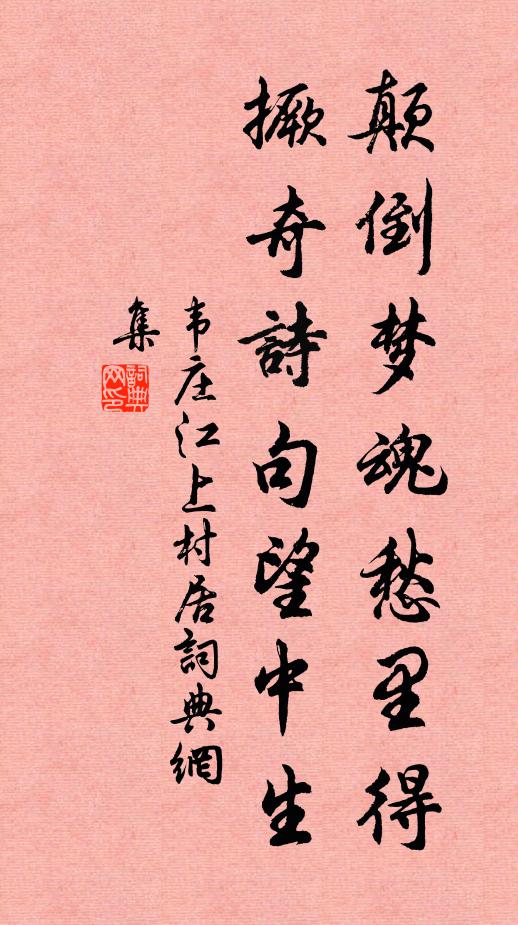 颠倒梦魂愁里得
撅奇詩句望中生
韦庄江上村居詞典網
集
詞典網印